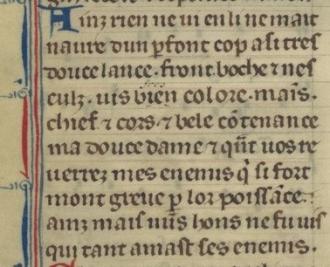 Ainz rien ne vi en li ne mait
navre dun ꝑfont cop a si tres
douce lance. front. boche ⁊ nes
eulz. vis bien colore. mais.
chief ⁊ cors. ⁊ bele cōtenance
ma douce dame ⁊ qn̄t vos re
uerrez mes enemis q̄ si fort
mont greue ꝑ lor poissāce.
ainz mais vius hons ne fu vis
qui tant amast ses enemis.